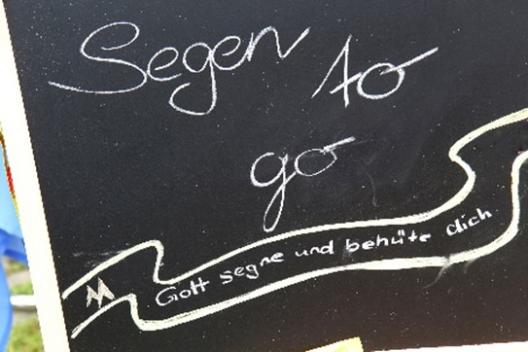 Segen to
go
Gott segne und behüte dich